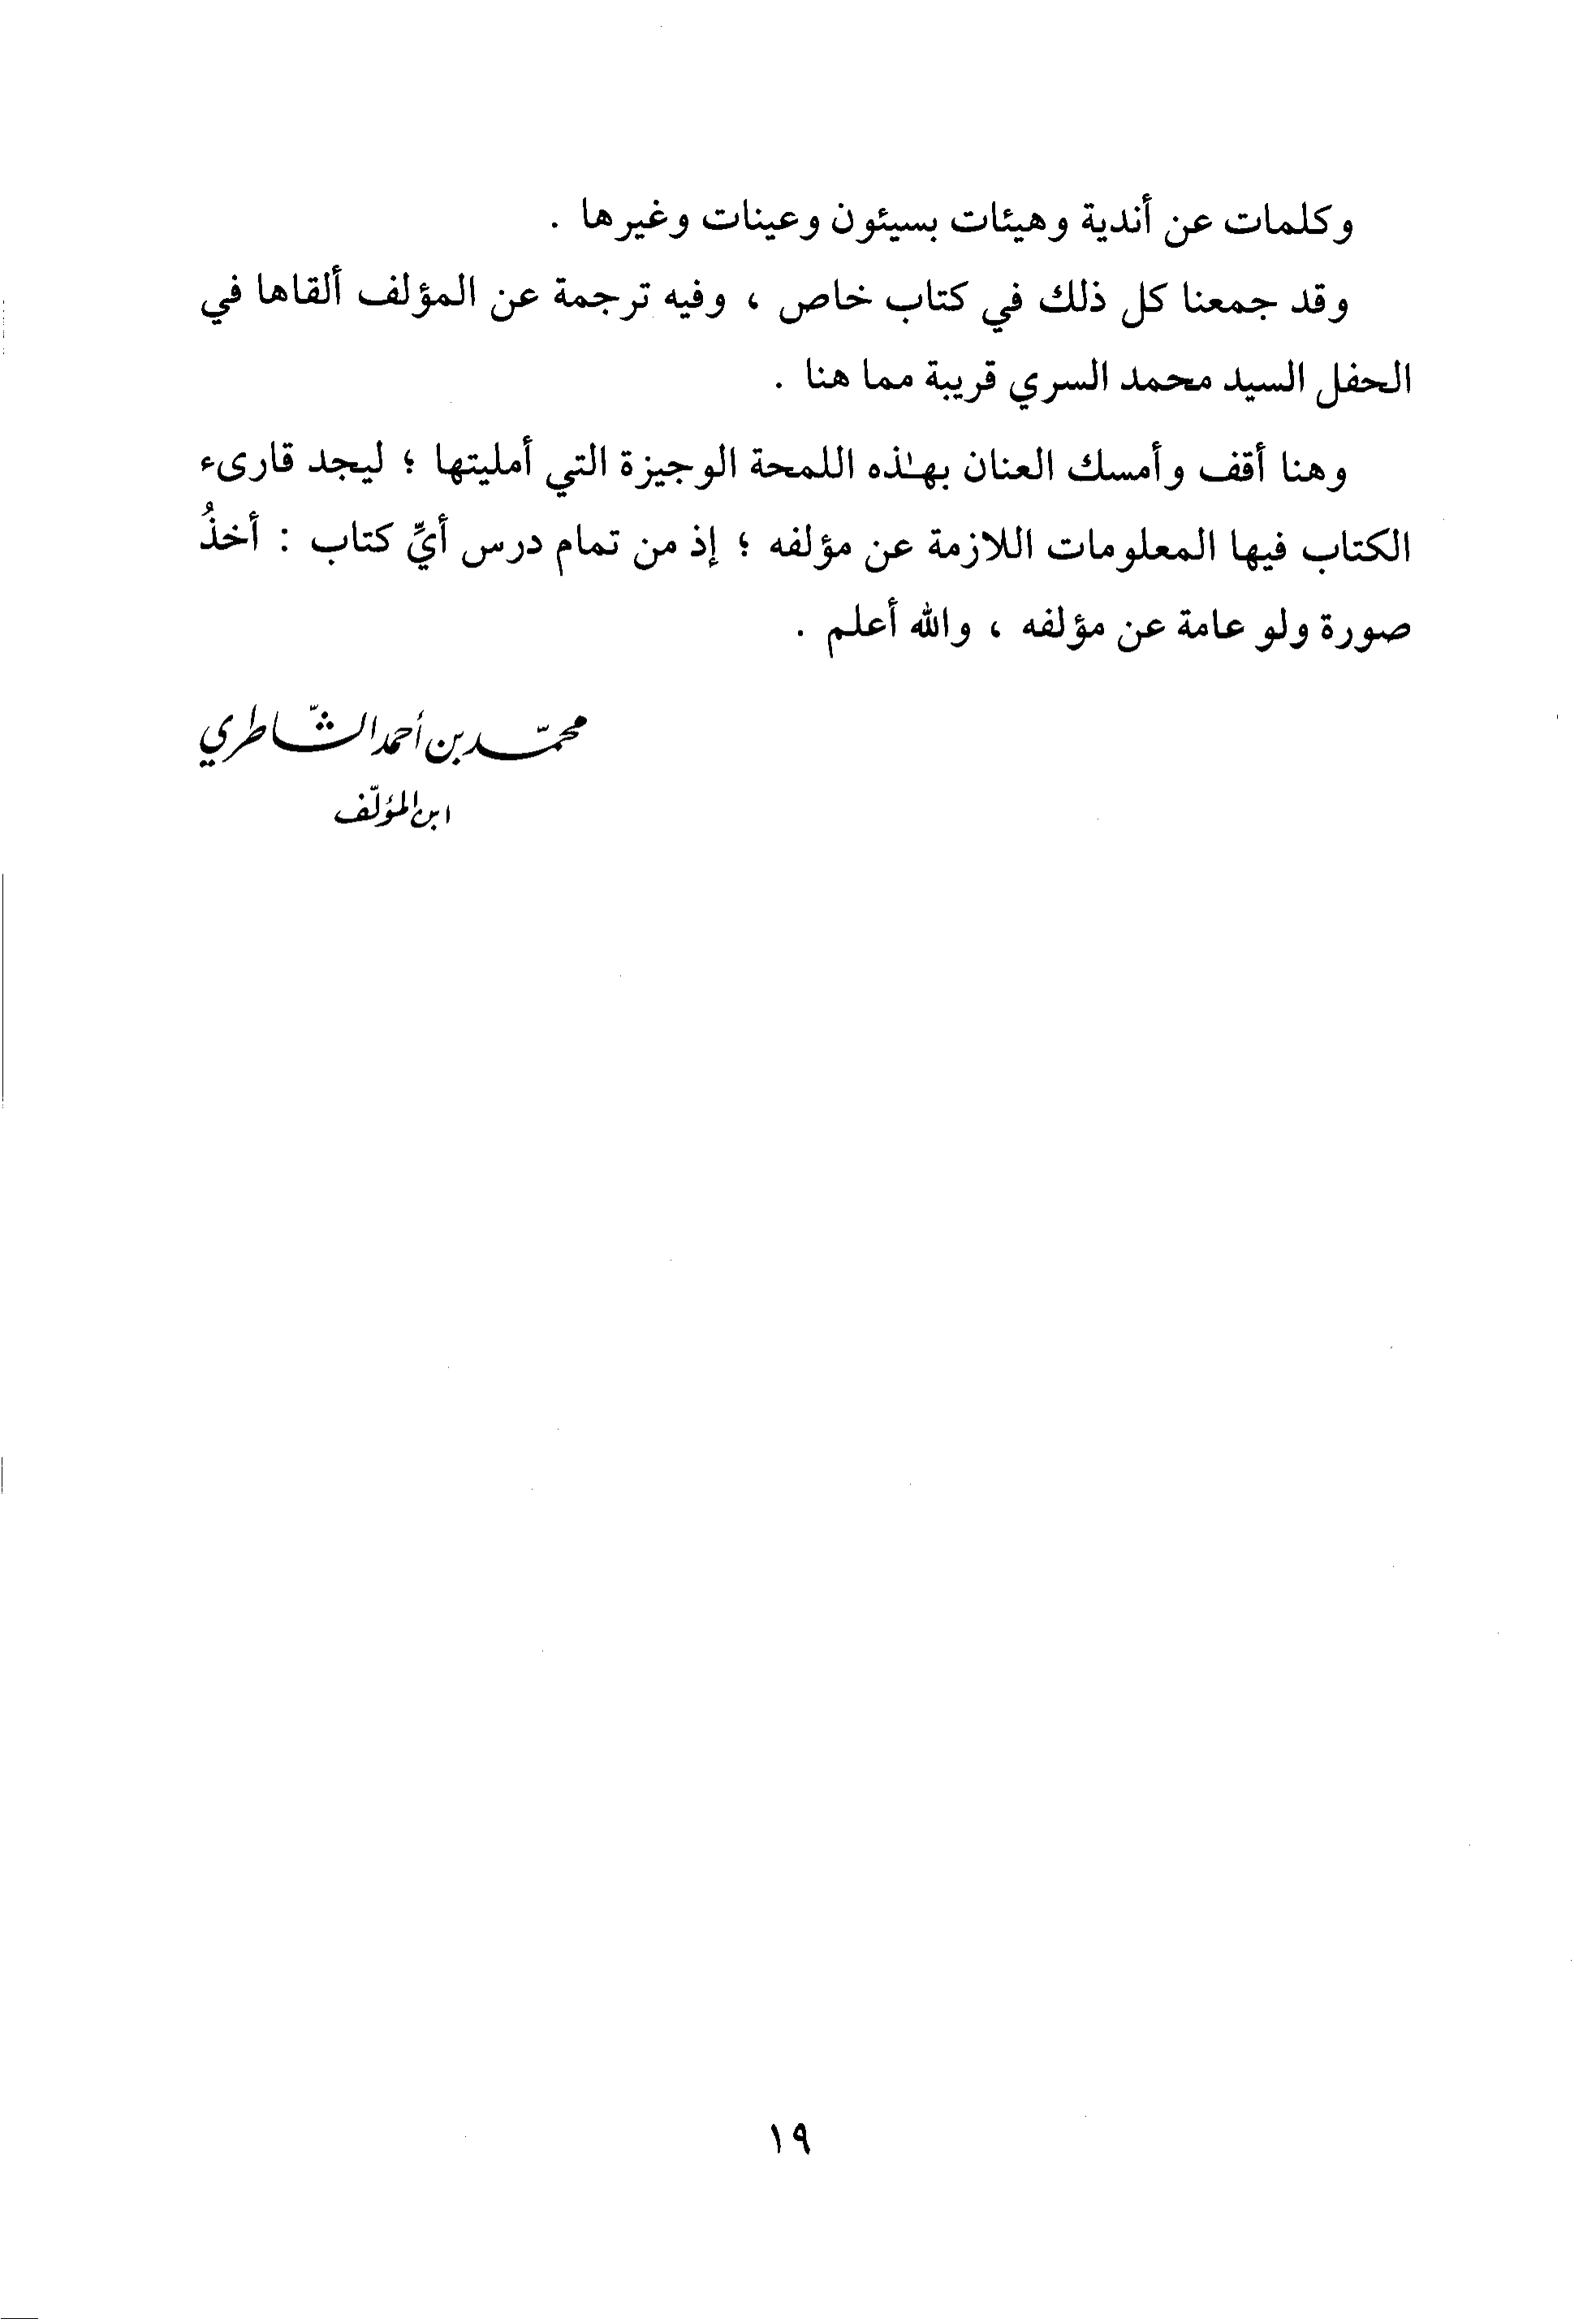 وكلمات عن أندية وهيئات بسيئون وعينات وغيرها .
وقد جمعنا كل ذلك في كتاب خاص ، وفيه ترجمة عن المؤلف ألقاها في
الحفل السيد محمد السري قريبة مما هنا .
وهنا أقف وأمسك العنان بهـٰذه اللمحة الوجيزة التي أمليتها ؛ ليجد قارىء
الكتاب فيها المعلومات اللازمة عن مؤلفه ؛ إذ من تمام درس أيِّ كتاب : أخذُ
صورة ولو عامة عن مؤلفه ، والله أعلم .
محمّد بن أحمد الشّاطري
ابن المؤلّف
١٩